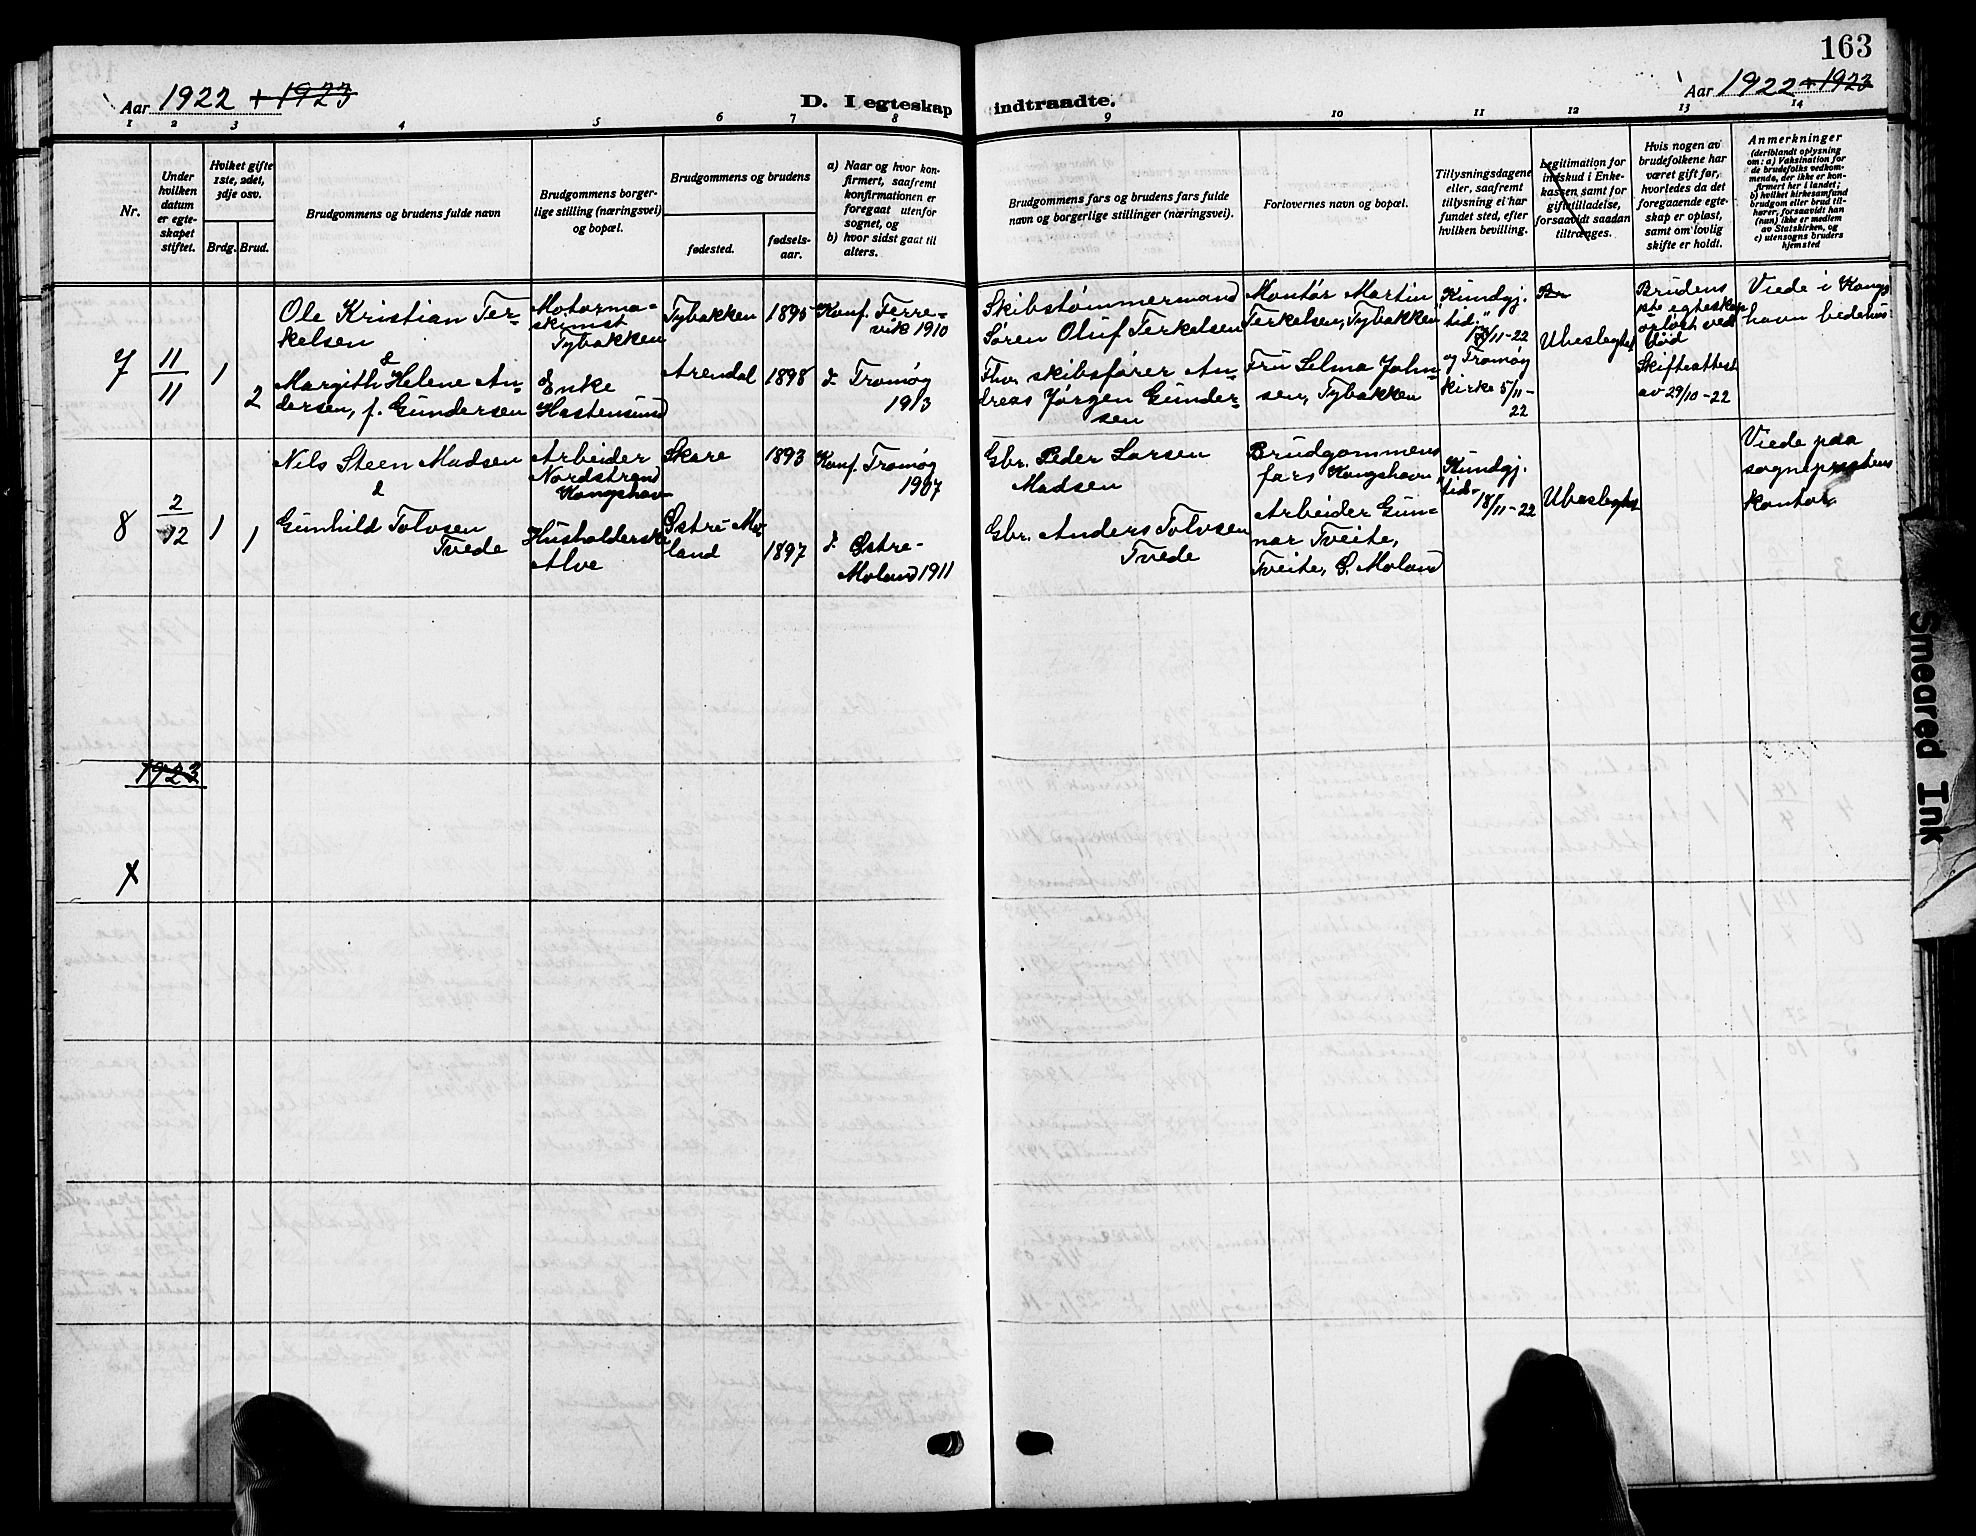 163
Aar 1922 + 1923
D. I egteskap indtraadte.
Aar 1922 + 1923
1 2 3 4 5 6 7 8 9 10 11 12 13 14
Nr.
Under
hvilken
datum
er egte-
skapet
stiftet.
Hvilket gifte
1ste, 2det,
3dje osv.
Brdg. Brud.
Brudgommens og brudens fulde navn
Brudgommens borger-
lige stilling (næringsvei)
og bopæl.
Brudgommens og brudens
fødested.
fødsels-
aar.
a) Naar og hvor kon-
firmert, saafremt
konfirmationen er
foregaat utenfor
sognet, og
b) hvor sidst gaat til
alters.
Brudgommens fars og brudens fars fulde
navn og borgerlige stillinger (næringsvei).
Forlovernes navn og bopæl.
Tillysningsdagene
eller, saafremt
tillysning ei har
fundet sted, efter
hvilken bevilling.
Legitimation for
indskud i Enke-
kassen samt for
gifttilladelse,
forsaavidt saadan
tiltrænges.
Hvis nogen av
brudefolkene har
været gift før,
hvorledes da det
foregaaende egte-
skap er opløst,
samt om lovlig
skifte er holdt.
Anmerkninger
(deriblandt oplysning
om: a) Vaksination for
de brudefolks vedkom-
mende, der ikke er kon-
firmert her i landet;
b) hvilket kirkesamfund
brudgom eller brud til-
hører, forsaavidt han
(hun) ikke er medlem
av Statskirken, og
c) utensogns bruders
hjemsted
7
11
11
1
2
Ole Kristian Ter-
kelsen
&
Margith Helene An-
dersen, f. Gundersen
Motorma-
skinist
Tybakken
& Enke
Hastensund
Tybakken
Arendal
1895
1898
Konf. Færre-
vik 1910
d. Tromøy
1913
Skibstømmermand
Søren Oluf Terkelsen
Fhv. skibsfører An-
dreas Jørgen Gunder-
sen
Montør Martin
Terkelsen, Tybakken
Fru Selma John-
sen, Tybakken
Kundgj.
tid."
/11-22
og Tromøy
kirke 5/11-
22
Ubeslegtet
Brudens
egteskap
opløst ved
død
Skifteattest
av 29/10-22
Viede i Kongs
havn bedehus
8
2
12
1
1
Nils Steen Madsen
&
Gunhild Tolvsen
Tvede
Arbeider
Nordstrand
Kongshavn
Husholderske
Alve
Skare
Østre Mo-
land
1893
1897
Konf. Tromøy
1907
d. Østre-
Moland 1911
Gbr. Peder Larsen
Madsen
Gbr. Anders Tolvsen
Tvede
Brudgommens
fars Kongshavn
Arbeider Gun-
nar Tveite,
Tveite, Ø. Moland
Kundgj.
tid.
18/11-22
Ubeslegtet
Viede paa
sogneprestens
kontor
1923
Smeared Ink